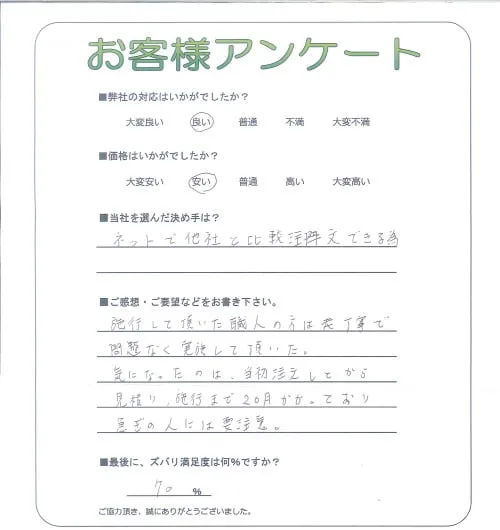 お客様アンケート
■弊社の対応はいかがでしたか？
大変良い 良い 普通 不満 大変不満
■価格はいかがでしたか？
大変安い 安い 普通 高い 大変高い
■当社を選んだ決め手は？
ネットで他社と比較注文できる為
■ご感想・ご要望などをお書き下さい。
施行して頂いた職人の方は丁寧で
問題なく実施して頂いた。
気になったのは、当初注文してから
見積り、施行まで20日かかっており
急ぎの人には要注意。
■最後に、ズバリ満足度は何％ですか？
70 ％
ご協力頂き、誠にありがとうございました。